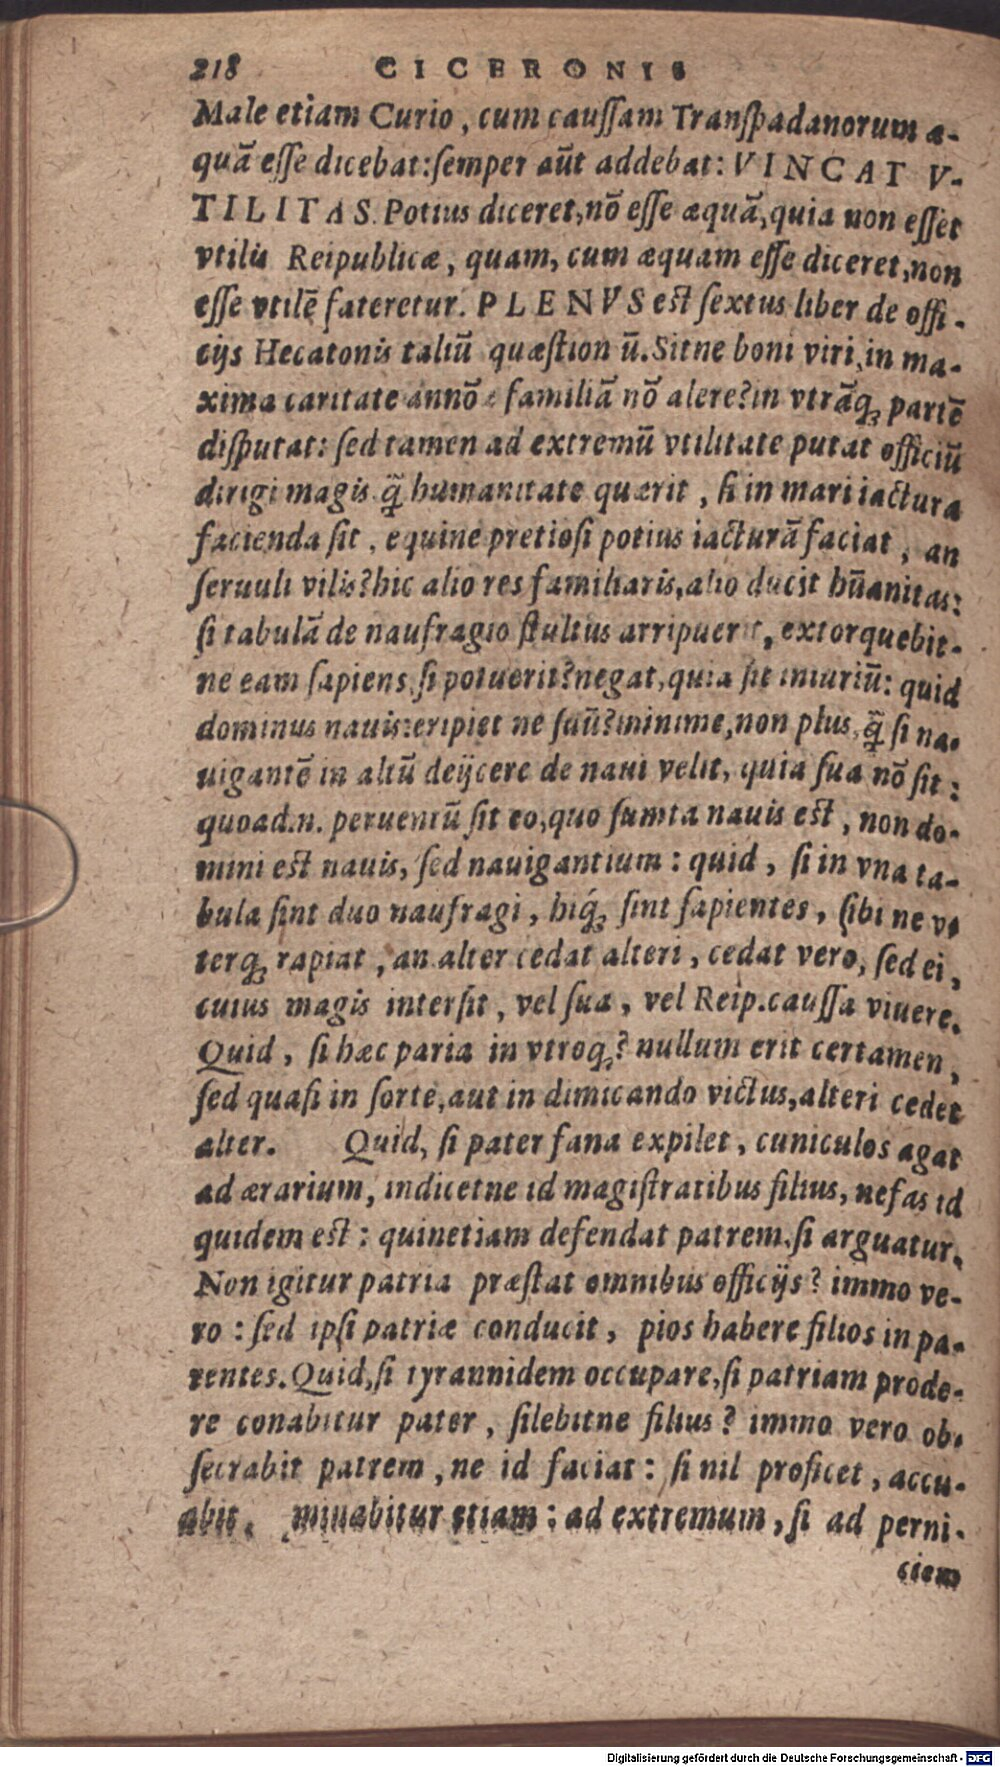 218 CICERONIS
Male etiam Curio, cum cauſſam Tranſpadanorum æ-
quā eſſe dicebat: ſemper aūt addebat: VINCAT V-
TILITAS. Potius diceret, nō eſſe æquā, quia non eſſet
vtilis Reipublicæ, quam, cum æquam eſſe diceret, non
eſſe vtilē fateretur. PLENVS est ſextus liber de offi-
cijs Hecatonis taliū quæstionū. Sitne boni viri, in ma-
xima caritate annōe familiā nō alere? in vtrāq; partē
diſputat: ſed tamen ad extremū vtilitate putat officiū
dirigi magis q̄ humanitate quærit, ſi in mari iactura
facienda ſit, equine pretioſi potius iacturā faciat, an
ſeruuli vilis? hic alio res familiaris, alio ducit hūanitas:
ſi tabulā de naufragio ſtultus arripuerit, extorquebit-
ne eam ſapiens, ſi potuerit? negat, quia ſit iniuriū: quid
dominus nauis: eripiet ne ſuū? minime, non plus, q̄ ſi na-
uigantē in altū deijcere de naui velit, quia ſua nō ſit:
quoad.n. peruentū ſit eo, quo ſumta nauis est, non do-
mini est nauis, ſed nauigantium: quid, ſi in vna ta-
bula ſint duo naufragi, hiq́; ſint ſapientes, ſibi ne v-
terq; rapiat, an alter cedat alteri, cedat vero, ſed ei,
cuius magis interſit, vel ſua, vel Reip. cauſſa viuere.
Quid, ſi hæc paria in vtroq;? nullum erit certamen,
ſed quaſi in ſorte, aut in dimicando victus, alteri cedet
alter. Quid, ſi pater fana expilet, cuniculos agat
ad ærarium, indicetne id magiſtratibus filius, nefas id
quidem est: quinetiam defendat patrem, ſi arguatur.
Non igitur patria præſtat omnibus officijs? immo ve-
ro: ſed ipſi patriæ conducit, pios habere filios in pa-
rentes. Quid, ſi tyrannidem occupare, ſi patriam prode-
re conabitur pater, ſilebitne filius? immo vero ob-
ſecrabit patrem, ne id faciat: ſi nil proficet, accu-
abit, minabitur etiam: ad extremum, ſi ad perni-
ciem
Digitalisierung gefördert durch die Deutsche Forschungsgemeinschaft - DFG